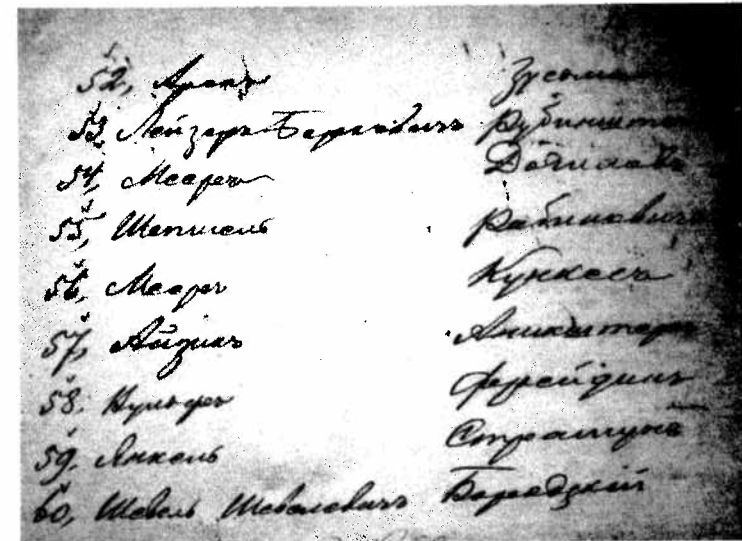 52, Аронъ Зусьма
53, Лейзеръ Берковичъ Рубинште
54, Мееръ
55, Шепшель Рабиновичъ
56, Мееръ Кункесъ
57, Айзикъ Аникштеръ
58. Вульфъ Фрейдинъ
59. Янкель Страшунъ
60, Шевель Шевелевичъ Бородзкій